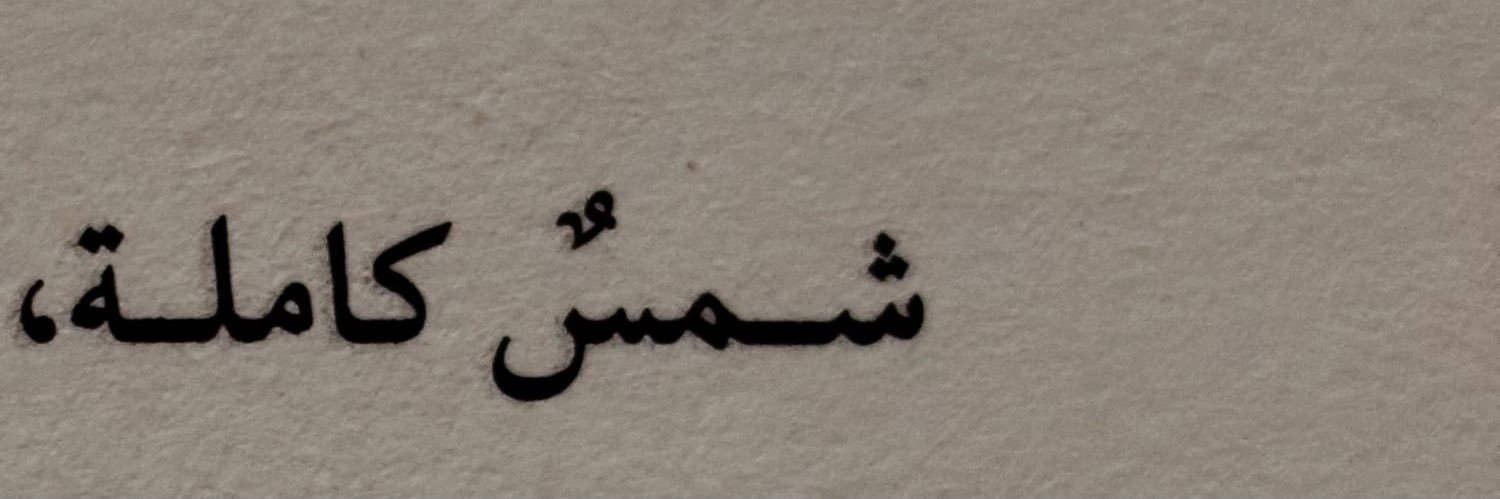 شـمسٌ كاملـة،